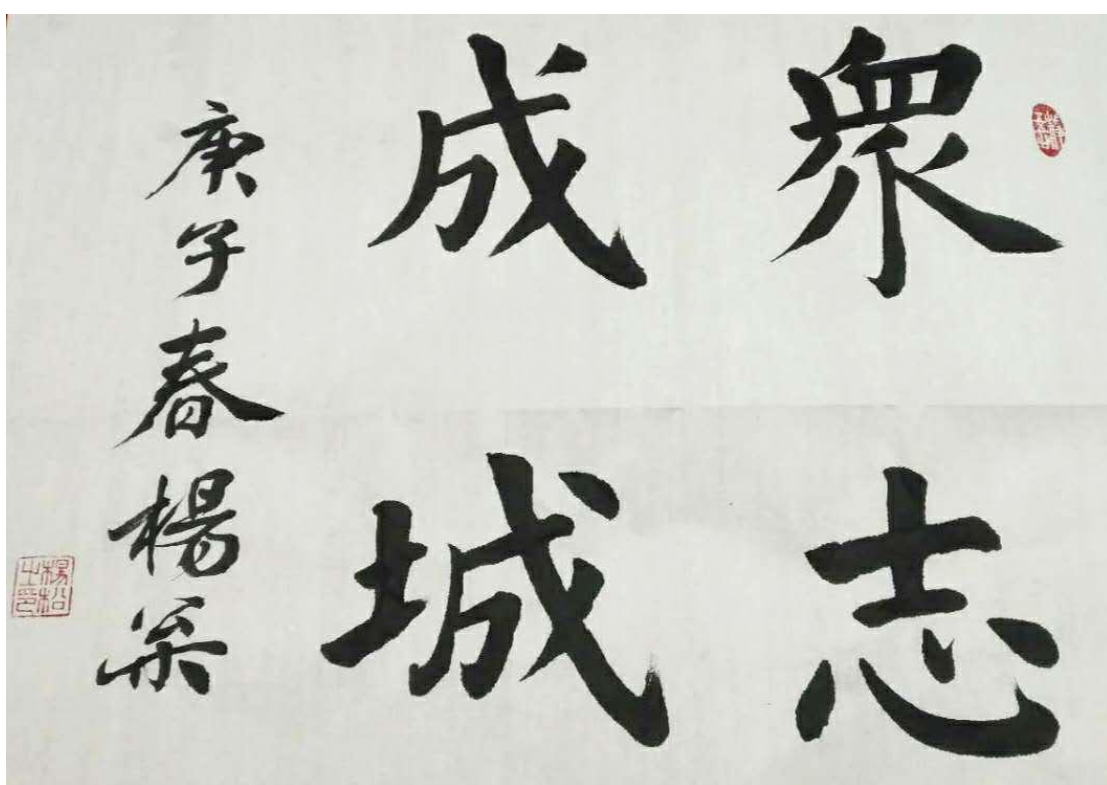 眾志
成城
庚子春楊枀
楊松之印